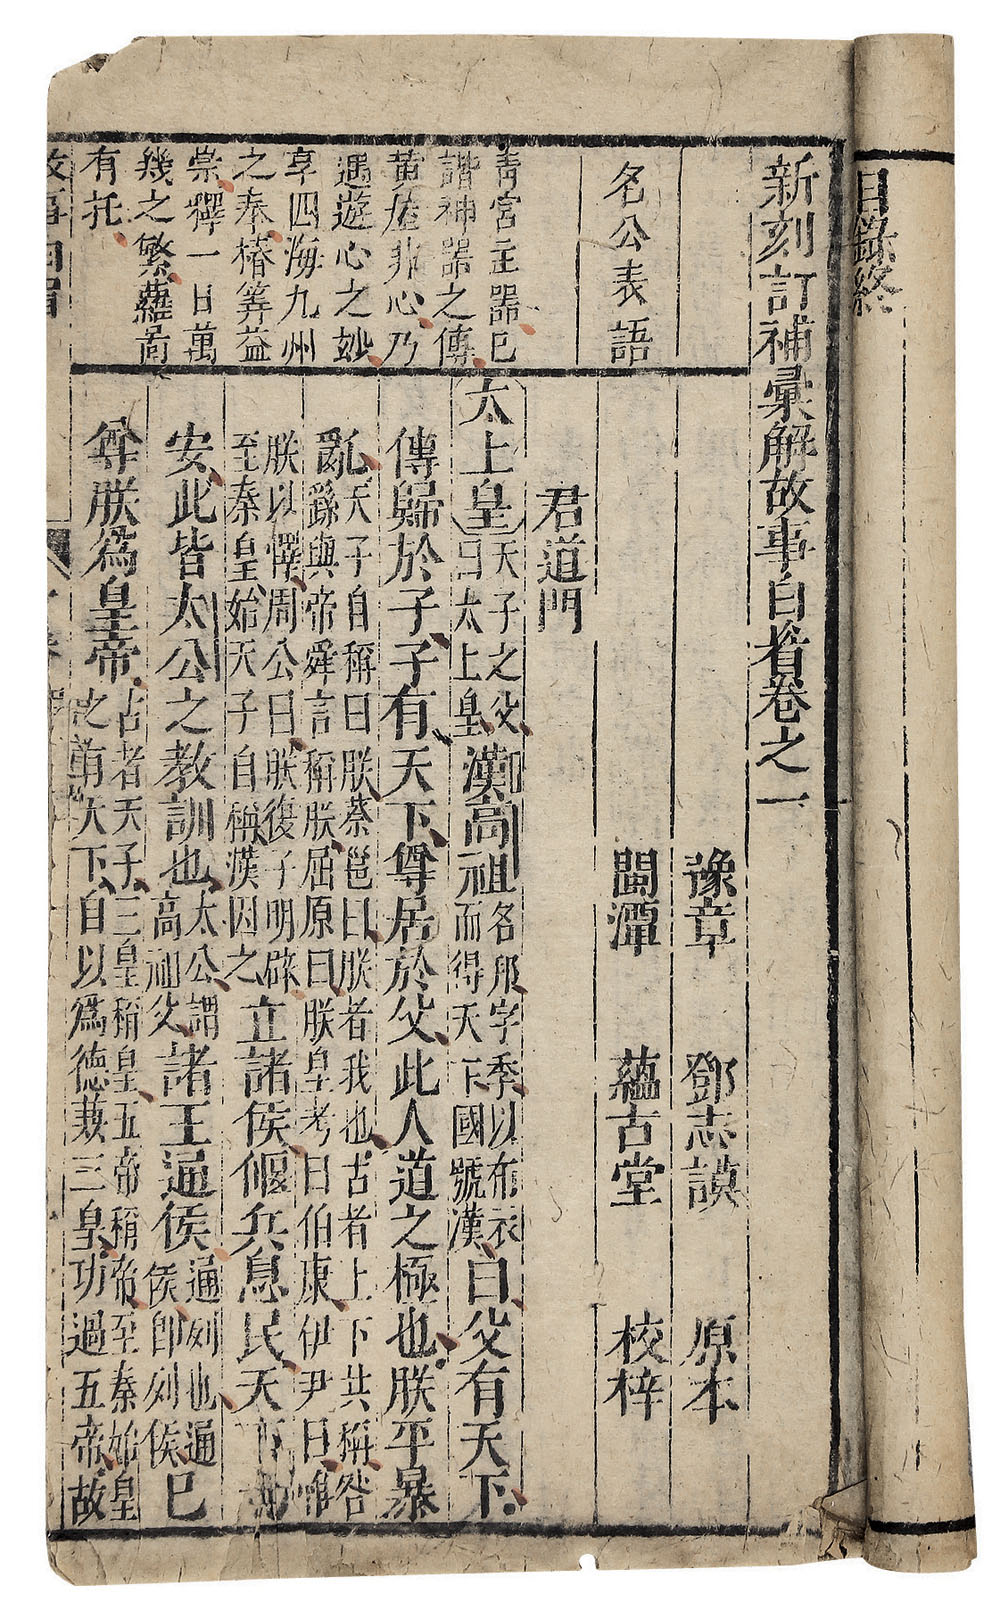 目錄終
新刻訂補彙解故事白眉卷之一
豫章 鄧志謨 原本
閩潭 蘊古堂 校梓
名公表語
青宮主器已
諧神器之傳
黃屋非心乃
遇遊心之妙
享四海九州
之奉椿筭益
崇釋一日萬
幾之繁蘿啚
有托
君道門
太上皇天子之父曰太上皇漢高祖名邦字季以布衣而得天下國號漢曰父有天下
傳歸於子子有天下尊居於父此人道之極也朕平暴
亂天子自稱曰朕蔡邕曰朕者我也古者上下共稱咎繇與帝舜言稱朕屈原曰朕皇考曰伯康伊尹曰惟
朕以懌周公曰朕復子明辟至秦皇始天子自稱漢因之立諸侯偃兵息民天下
安此皆太公之教訓也太公謂高祖父諸王通侯通列也通侯即列侯已
尊朕為皇帝古者天子三皇稱皇五帝稱帝至秦始皇之甫天下自以為德兼三皇功過五帝故